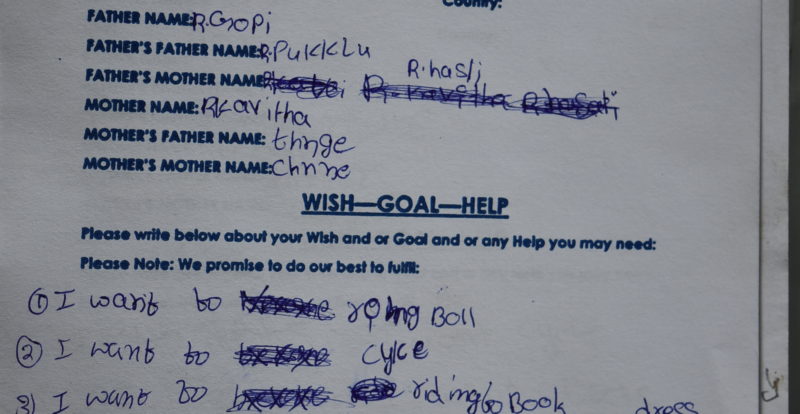 Country:
FATHER NAME: R.Gopi
FATHER'S FATHER NAME: R.PUKKLU
FATHER'S MOTHER NAME: R.hasli
MOTHER NAME: R.Kavitha
MOTHER'S FATHER NAME: thnge
MOTHER'S MOTHER NAME: Chnne
WISH—GOAL—HELP
Please write below about your Wish and or Goal and or any Help you may need:
Please Note: We promise to do our best to fulfil:
① I want to Boll
② I want to cyke
3) I want to riding to Book dress